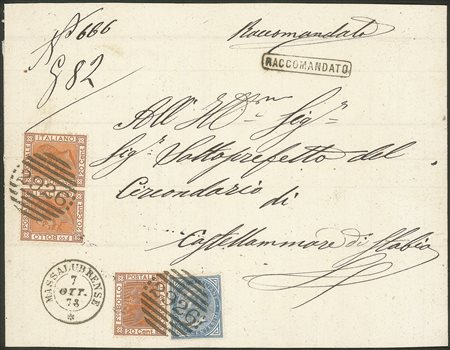 N° 666
G 82
Raccomandata
RACCOMANDATO
All' Ill.mo Sig.r
Sig.r Sottoprefetto del
Circondario
di
Castellammare di Stabia
ITALIANO
20 Cent.
20 Cent.
BOLLO
MASSALUBRENSE
7
OTT.
73
POSTALE
FRANCOBOLLO
20 Cent.
926